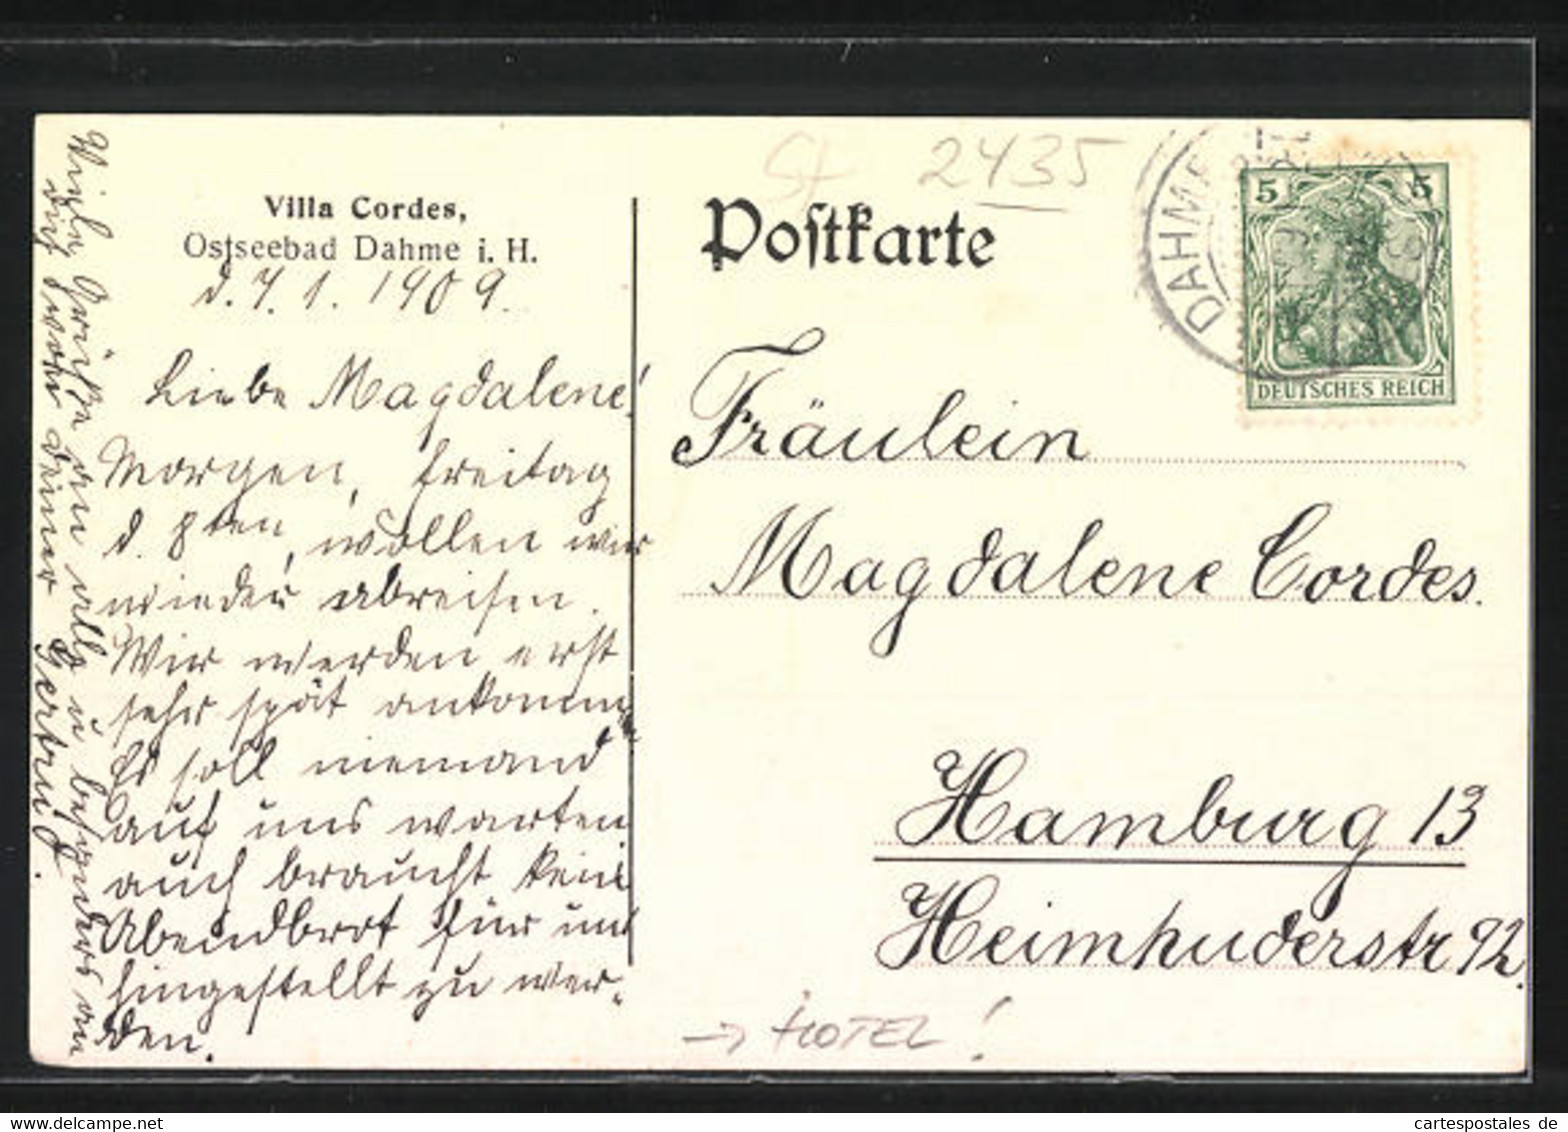 Villa Cordes,
Ostseebad Dahme i. H.
d. 7. 1. 1909.
Liebe Magdalene!
Morgen, Freitag
d. 8ten, wollen wir
wieder abreisen.
Wir werden erst
sehr spät ankommen
Es soll niemand
auf uns warten
auch braucht kein
Abendbrot für uns
hingestellt zu wer-
den.
Viele Grüße an alle u besonders an
dich von deiner Gertrud.
St 2435
Postkarte
DAHME
5 5
DEUTSCHES REICH
Fräulein
Magdalene Cordes.
Hamburg 13
Heimhuderstr 92.
→ HOTEL!
cartespostales de